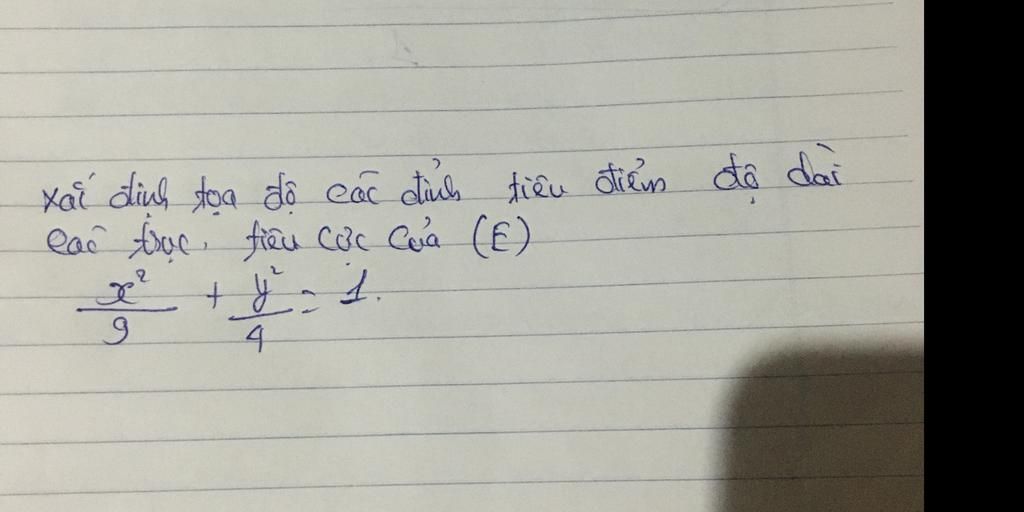 xác định tọa độ các đỉnh tiêu điểm độ dài
các trục, tiêu cực của (E)
x²/9 + y²/4 = 1.